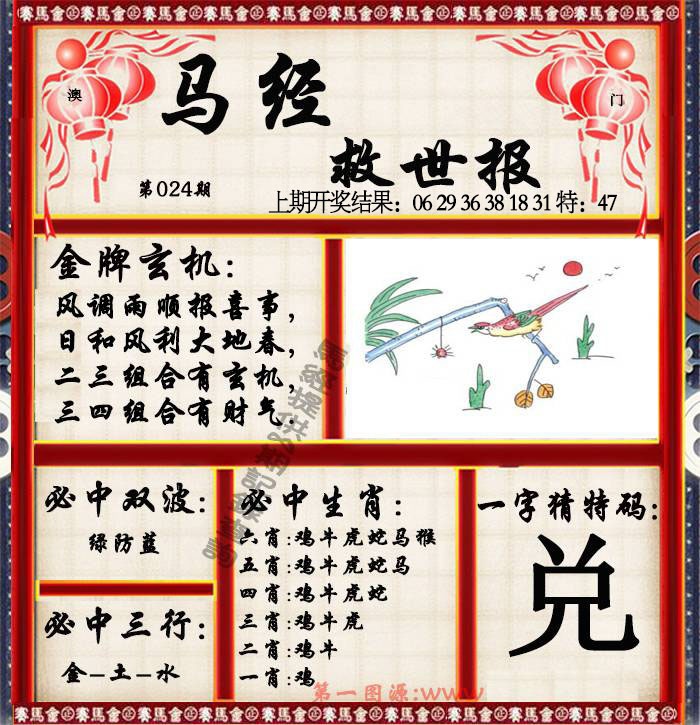 賽馬會 賽馬會 賽馬會 賽馬會 賽馬會 賽馬會 賽馬會 賽馬會
澳
门
马经
救世报
第024期
上期开奖结果：06 29 36 38 18 31 特：47
金牌玄机：
风调雨顺报喜事，
日和风利大地春，
二三组合有玄机，
三四组合有财气.
必中双波：
绿防蓝
必中三行：
金-土-水
必中生肖：
六肖:鸡牛虎蛇马猴
五肖:鸡牛虎蛇马
四肖:鸡牛虎蛇
三肖:鸡牛虎
二肖:鸡牛
一肖:鸡
一字猜特码:
兑
第一图源:www